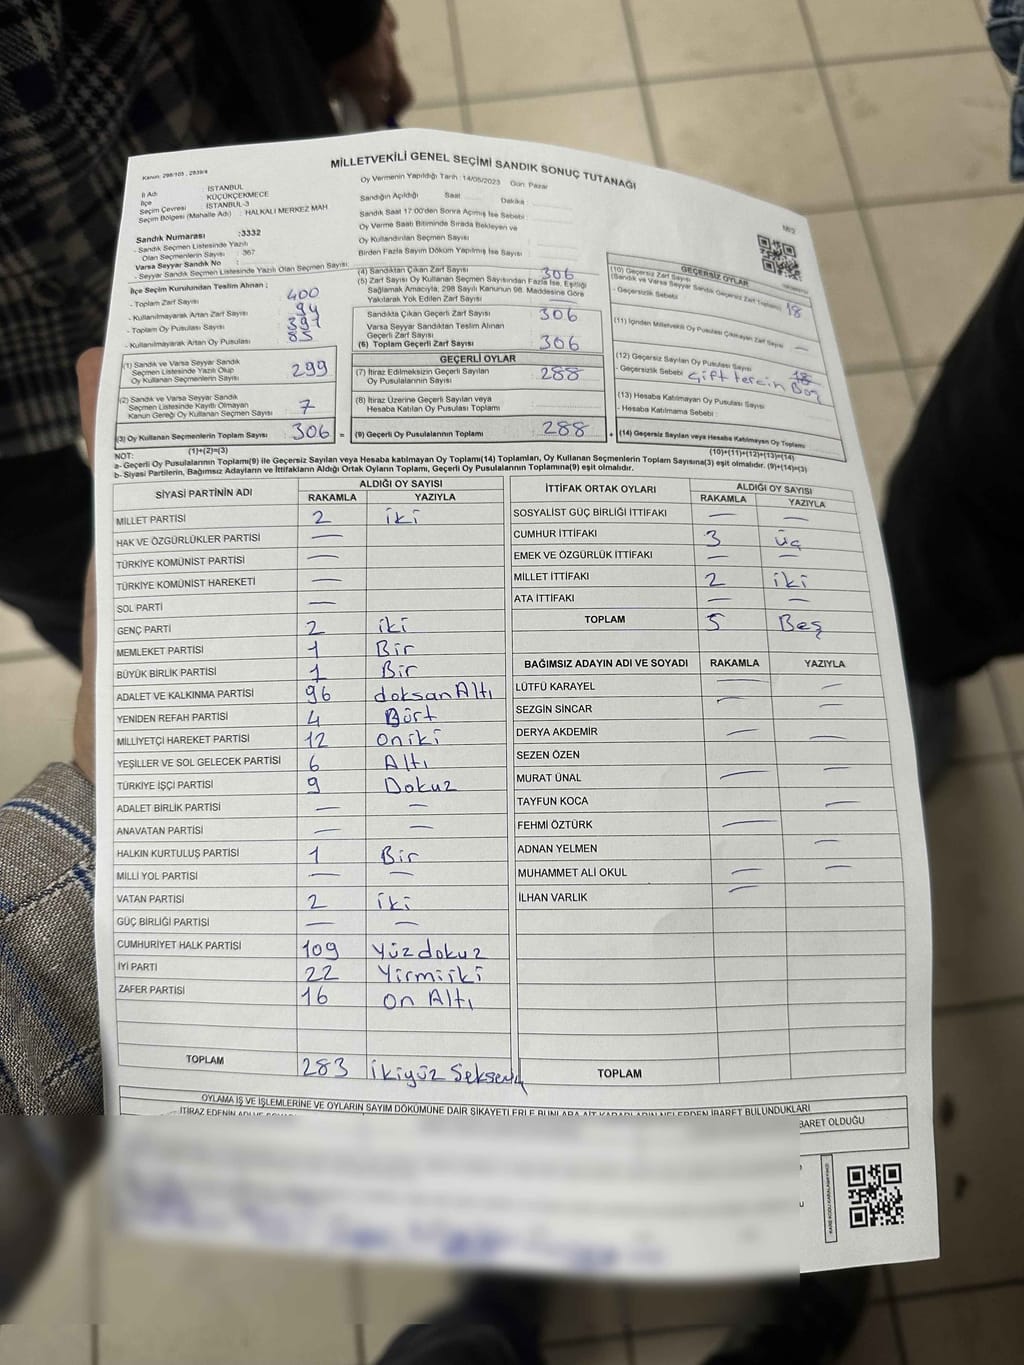 MİLLETVEKİLİ GENEL SEÇİMİ SANDIK SONUÇ TUTANAĞI
Kanun: 298/105 , 2839/4
İl Adı : İSTANBUL
İlçe : KÜÇÜKÇEKMECE
Seçim Çevresi : İSTANBUL-3
Seçim Bölgesi (Mahalle Adı) : HALKALI MERKEZ MAH
Sandık Numarası :3332
- Sandık Seçmen Listesinde Yazılı
Olan Seçmenlerin Sayısı : 367
Varsa Seyyar Sandık No :
- Seyyar Sandık Seçmen Listesinde Yazılı Olan Seçmen Sayısı:
Oy Vermenin Yapıldığı Tarih : 14/05/2023 Gün: Pazar
Sandığın Açıldığı Saat Dakika
Sandık Saat 17:00'den Sonra Açılmış İse Sebebi
Oy Verme Saati Bitiminde Sırada Bekleyen ve
Oy Kullandırılan Seçmen Sayısı
Birden Fazla Sayım Döküm Yapılmış İse Sayısı
İlçe Seçim Kurulundan Teslim Alınan ;
- Toplam Zarf Sayısı 400
- Kullanılmayarak Artan Zarf Sayısı 94
- Toplam Oy Pusulası Sayısı
- Kullanılmayarak Artan Oy Pusulası 85
(1) Sandık ve Varsa Seyyar Sandık
Seçmen Listesinde Yazılı Olup
Oy Kullanan Seçmenlerin Sayısı 299
(2) Sandık ve Varsa Seyyar Sandık
Seçmen Listesinde Kayıtlı Olmayan
Kanun Gereği Oy Kullanan Seçmen Sayısı 7
(3) Oy Kullanan Seçmenlerin Toplam Sayısı 306 =
(1)+(2)=(3)
(4) Sandıktan Çıkan Zarf Sayısı 306
(5) Zarf Sayısı Oy Kullanan Seçmen Sayısından Fazla İse, Eşitliği
Sağlamak Amacıyla, 298 Sayılı Kanunun 98. Maddesine Göre
Yakılarak Yok Edilen Zarf Sayısı —
Sandıkta Çıkan Geçerli Zarf Sayısı 306
Varsa Seyyar Sandıktan Teslim Alınan
Geçerli Zarf Sayısı
(6) Toplam Geçerli Zarf Sayısı 306
GEÇERLİ OYLAR
(7) İtiraz Edilmeksizin Geçerli Sayılan
Oy Pusulalarının Sayısı 288
(8) İtiraz Üzerine Geçerli Sayılan veya
Hesaba Katılan Oy Pusulası Toplamı
(9) Geçerli Oy Pusulalarının Toplamı 288 +
M/3
GEÇERSİZ OYLAR
(10) Geçersiz Zarf Sayısı
(Sandık ve Varsa Seyyar Sandık Geçersiz Zarf Toplamı) 18
- Geçersizlik Sebebi
(11) İçinden Milletvekili Oy Pusulası Çıkmayan Zarf Sayısı —
(12) Geçersiz Sayılan Oy Pusulası Sayısı 18
- Geçersizlik Sebebi Çift tercih Boş
(13) Hesaba Katılmayan Oy Pusulası Sayısı
- Hesaba Katılmama Sebebi
(14) Geçersiz Sayılan veya Hesaba Katılmayan Oy Toplamı
(10)+(11)+(12)+(13)=(14)
NOT:
a- Geçerli Oy Pusulaları Toplamı(9) ile Geçersiz Sayılan veya Hesaba katılmayan Oy Toplamı(14) Toplamları, Oy Kullanan Seçmenlerin Toplam Sayısına(3) eşit olmalıdır. (9)+(14)=(3)
b- Siyasi Partilerin, Bağımsız Adayların ve İttifakların Aldığı Ortak Oyların Toplamı, Geçerli Oy Pusulalarının Toplamına(9) eşit olmalıdır.
SİYASİ PARTİNİN ADI ALDIĞI OY SAYISI
RAKAMLA YAZIYLA
MİLLET PARTİSİ 2 iki
HAK VE ÖZGÜRLÜKLER PARTİSİ —
TÜRKİYE KOMÜNİST PARTİSİ —
TÜRKİYE KOMÜNİST HAREKETİ —
SOL PARTİ —
GENÇ PARTİ 2 iki
MEMLEKET PARTİSİ 1 Bir
BÜYÜK BİRLİK PARTİSİ 1 Bir
ADALET VE KALKINMA PARTİSİ 96 doksan Altı
YENİDEN REFAH PARTİSİ 4 Dört
MİLLİYETÇİ HAREKET PARTİSİ 12 oniki
YEŞİLLER VE SOL GELECEK PARTİSİ 6 Altı
TÜRKİYE İŞÇİ PARTİSİ 9 Dokuz
ADALET BİRLİK PARTİSİ — —
ANAVATAN PARTİSİ — —
HALKIN KURTULUŞ PARTİSİ 1 Bir
MİLLİ YOL PARTİSİ — —
VATAN PARTİSİ 2 iki
GÜÇ BİRLİĞİ PARTİSİ — —
CUMHURİYET HALK PARTİSİ 109 Yüzdokuz
İYİ PARTİ 22 Yirmiiki
ZAFER PARTİSİ 16 on Altı
TOPLAM 283 ikiyüz
İTTİFAK ORTAK OYLARI ALDIĞI OY SAYISI
RAKAMLA YAZIYLA
SOSYALİST GÜÇ BİRLİĞİ İTTİFAKI — —
CUMHUR İTTİFAKI 3 üç
EMEK VE ÖZGÜRLÜK İTTİFAKI — —
MİLLET İTTİFAKI 2 iki
ATA İTTİFAKI — —
TOPLAM 5 Beş
BAĞIMSIZ ADAYIN ADI VE SOYADI RAKAMLA YAZIYLA
LÜTFÜ KARAYEL — —
SEZGİN SİNCAR — —
DERYA AKDEMİR — —
SEZEN ÖZEN
MURAT ÜNAL — —
TAYFUN KOCA —
FEHMİ ÖZTÜRK —
ADNAN YELMEN —
MUHAMMET ALİ OKUL — —
İLHAN VARLIK —
TOPLAM
OYLAMA İŞ VE İŞLEMLERİNE VE OYLARIN SAYIM DÖKÜMÜNE DAİR ŞİKAYETLERLE BUNLARA AİT KARARLARIN NELERDEN İBARET BULUNDUKLARI
İTİRAZ EDENİN ADI VE
BARET OLDUĞU